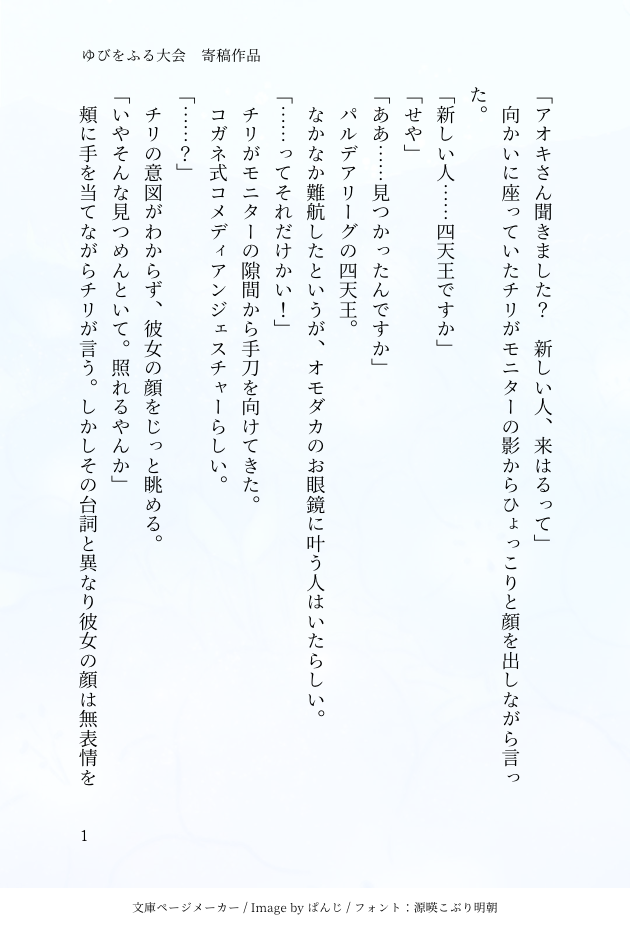 ゆびをふる大会　寄稿作品
「アオキさん聞きました？　新しい人、来はるって」
　向かいに座っていたチリがモニターの影からひょっこりと顔を出しながら言っ
た。
「新しい人……四天王ですか」
「せや」
「ああ……見つかったんですか」
　パルデアリーグの四天王。
　なかなか難航したというが、オモダカのお眼鏡に叶う人はいたらしい。
「……ってそれだけかい！」
　チリがモニターの隙間から手刀を向けてきた。
　コガネ式コメディアンジェスチャーらしい。
「……？」
　チリの意図がわからず、彼女の顔をじっと眺める。
「いやそんな見つめんといて。照れるやんか」
　頬に手を当てながらチリが言う。しかしその台詞と異なり彼女の顔は無表情を
1
文庫ページメーカー / Image by ぱんじ / フォント：源暎こぶり明朝